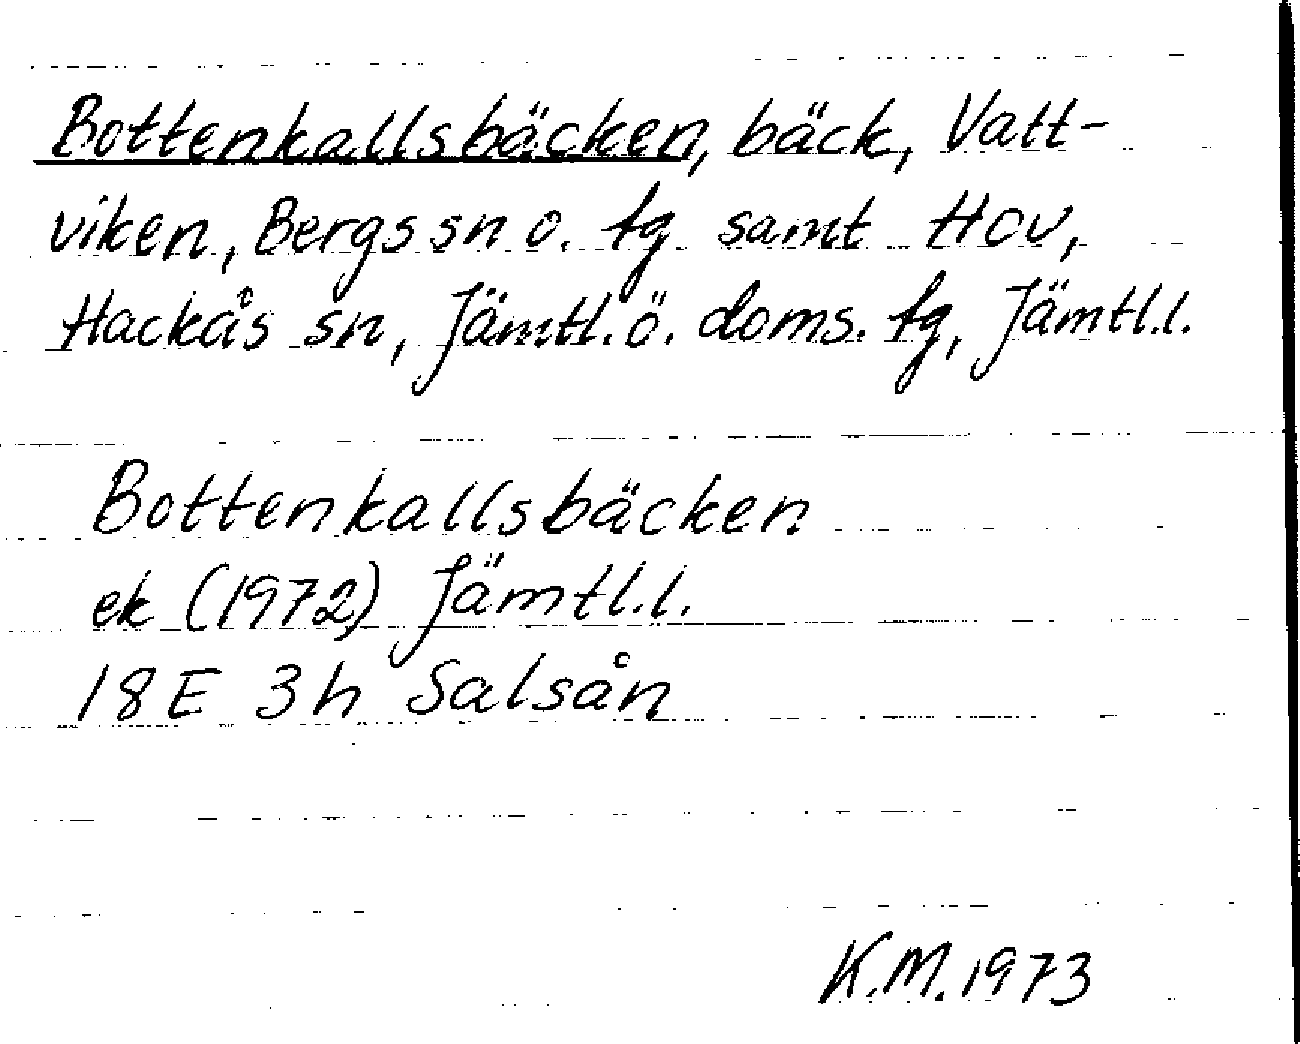 Bottenkallsbäcken, bäck, Vatt-
viken, Bergs sn o. tg samt Hov,
Hackås sn, Jämtl. ö. doms. tg, Jämtl.l.
Bottenkallsbäcken
ek (1972) Jämtl.l.
18E 3h Salsån
K.M. 1973